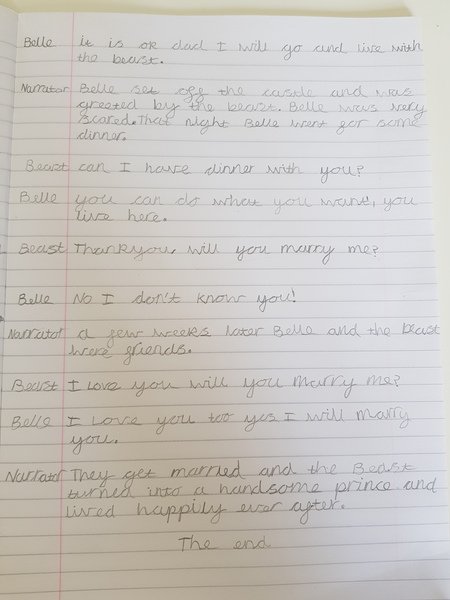 Belle it is ok dad I will go and live with
the beast.
Narrator Belle set off the castle and was
greeted by the beast. Belle was very
scared. That night Belle went for some
dinner.
Beast can I have dinner with you?
Belle you can do what you want, you
live here.
Beast Thankyou, will you marry me?
Belle No I don't know you!
Narrator a few weeks later Belle and the beast
were friends.
Beast I Love you will you Marry me?
Belle I Love you too yes I will Marry
you.
Narrator They get married and the Beast
turned into a handsome prince and
lived happily ever after.
The end